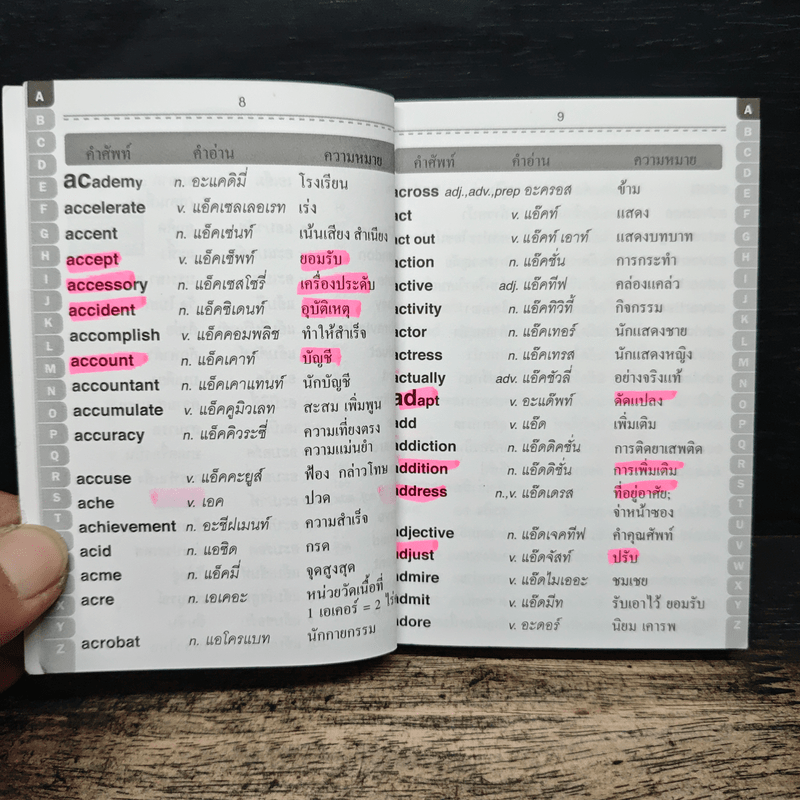 8
คำศัพท์ คำอ่าน ความหมาย
academy n. อะแคดิมี่ โรงเรียน
accelerate v. แอ็คเซลเลอเรท เร่ง
accent n. แอ็คเซ่นท์ เน้นเสียง สำเนียง
accept v. แอ็คเซ็พท์ ยอมรับ
accessory n. แอ็คเซสโซรี่ เครื่องประดับ
accident n. แอ็คซิเดนท์ อุบัติเหตุ
accomplish v. แอ็คคอมพลิช ทำให้สำเร็จ
account n. แอ็คเคาท์ บัญชี
accountant n. แอ็คเคาแทนท์ นักบัญชี
accumulate v. แอ็คคูมิวเลท สะสม เพิ่มพูน
accuracy n. แอ็คคิวระซี่ ความเที่ยงตรง
ความแม่นยำ
accuse v. แอ็คคะยูส์ ฟ้อง กล่าวโทษ
ache v. เอค ปวด
achievement n. อะชีฟเมนท์ ความสำเร็จ
acid n. แอซิด กรด
acme n. แอ็คมี่ จุดสูงสุด
acre n. เอเคอะ หน่วยวัดเนื้อที่
1 เอเคอร์ = 2 ไร่
acrobat n. แอโครแบท นักกายกรรม
A
B
C
D
E
F
G
H
I
J
K
L
M
N
O
P
Q
R
S
T
X
Y
Z
9
คำศัพท์ คำอ่าน ความหมาย
across adj.,adv.,prep อะครอส ข้าม
act v. แอ๊คท์ แสดง
act out v. แอ๊คท์ เอาท์ แสดงบทบาท
action n. แอ๊คชั่น การกระทำ
active adj. แอ๊คทีฟ คล่องแคล่ว
activity n. แอ๊คทิวิที้ กิจกรรม
actor n. แอ๊คเทอร์ นักแสดงชาย
actress n. แอ๊คเทรส นักแสดงหญิง
actually adv. แอ๊คชัวลี่ อย่างจริงแท้
adapt v. อะแด๊พท์ ดัดแปลง
add v. แอ๊ด เพิ่มเติม
addiction n. แอ๊ดดิคชั่น การติดยาเสพติด
addition n. แอ๊ดดิชั่น การเพิ่มเติม
address n.,v. แอ๊ดเดรส ที่อยู่อาศัย;
จ่าหน้าซอง
adjective n. แอ๊ดเจคทีฟ คำคุณศัพท์
adjust v. แอ๊ดจัสท์ ปรับ
admire v. แอ๊ดไมเออะ ชมเชย
admit v. แอ๊ดมีท รับเอาไว้ ยอมรับ
adore v. อะดอร์ นิยม เคารพ
A
B
C
D
E
F
G
H
I
J
K
L
M
N
O
P
Q
R
S
T
U
V
W
X
Y
Z